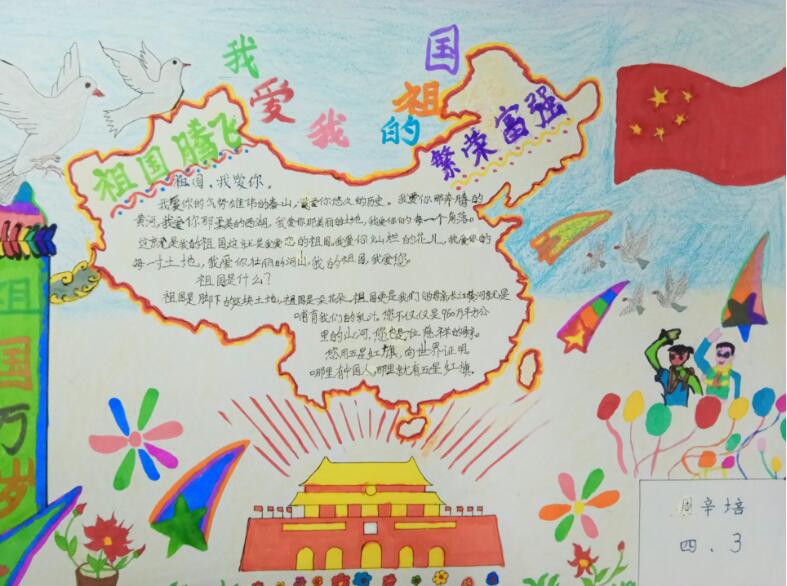 我爱我的祖国
祖国腾飞
繁荣富强
祖国,我爱你。
我爱你的气势雄伟的泰山,我爱你悠久的历史。我爱你那奔腾的
黄河,我爱你那柔美的西湖,我爱你那美丽的土地,我爱你的每一个角落。
这就是我的祖国这就是我爱恋的祖国。我爱你灿烂的花儿,我爱你的
每一寸土地,我爱你壮丽的河山,我的祖国,我爱您。
祖国是什么?
祖国是脚下的这块土地,祖国是朵花朵。祖国
哺育我们的乳汁。您不仅仅是960万平方公
里的山河,您也是一位慈祥的
您用五星红旗,向世界证明。
哪里有中国人,哪里就有五星红旗。
祖国万岁
周辛培
四.3